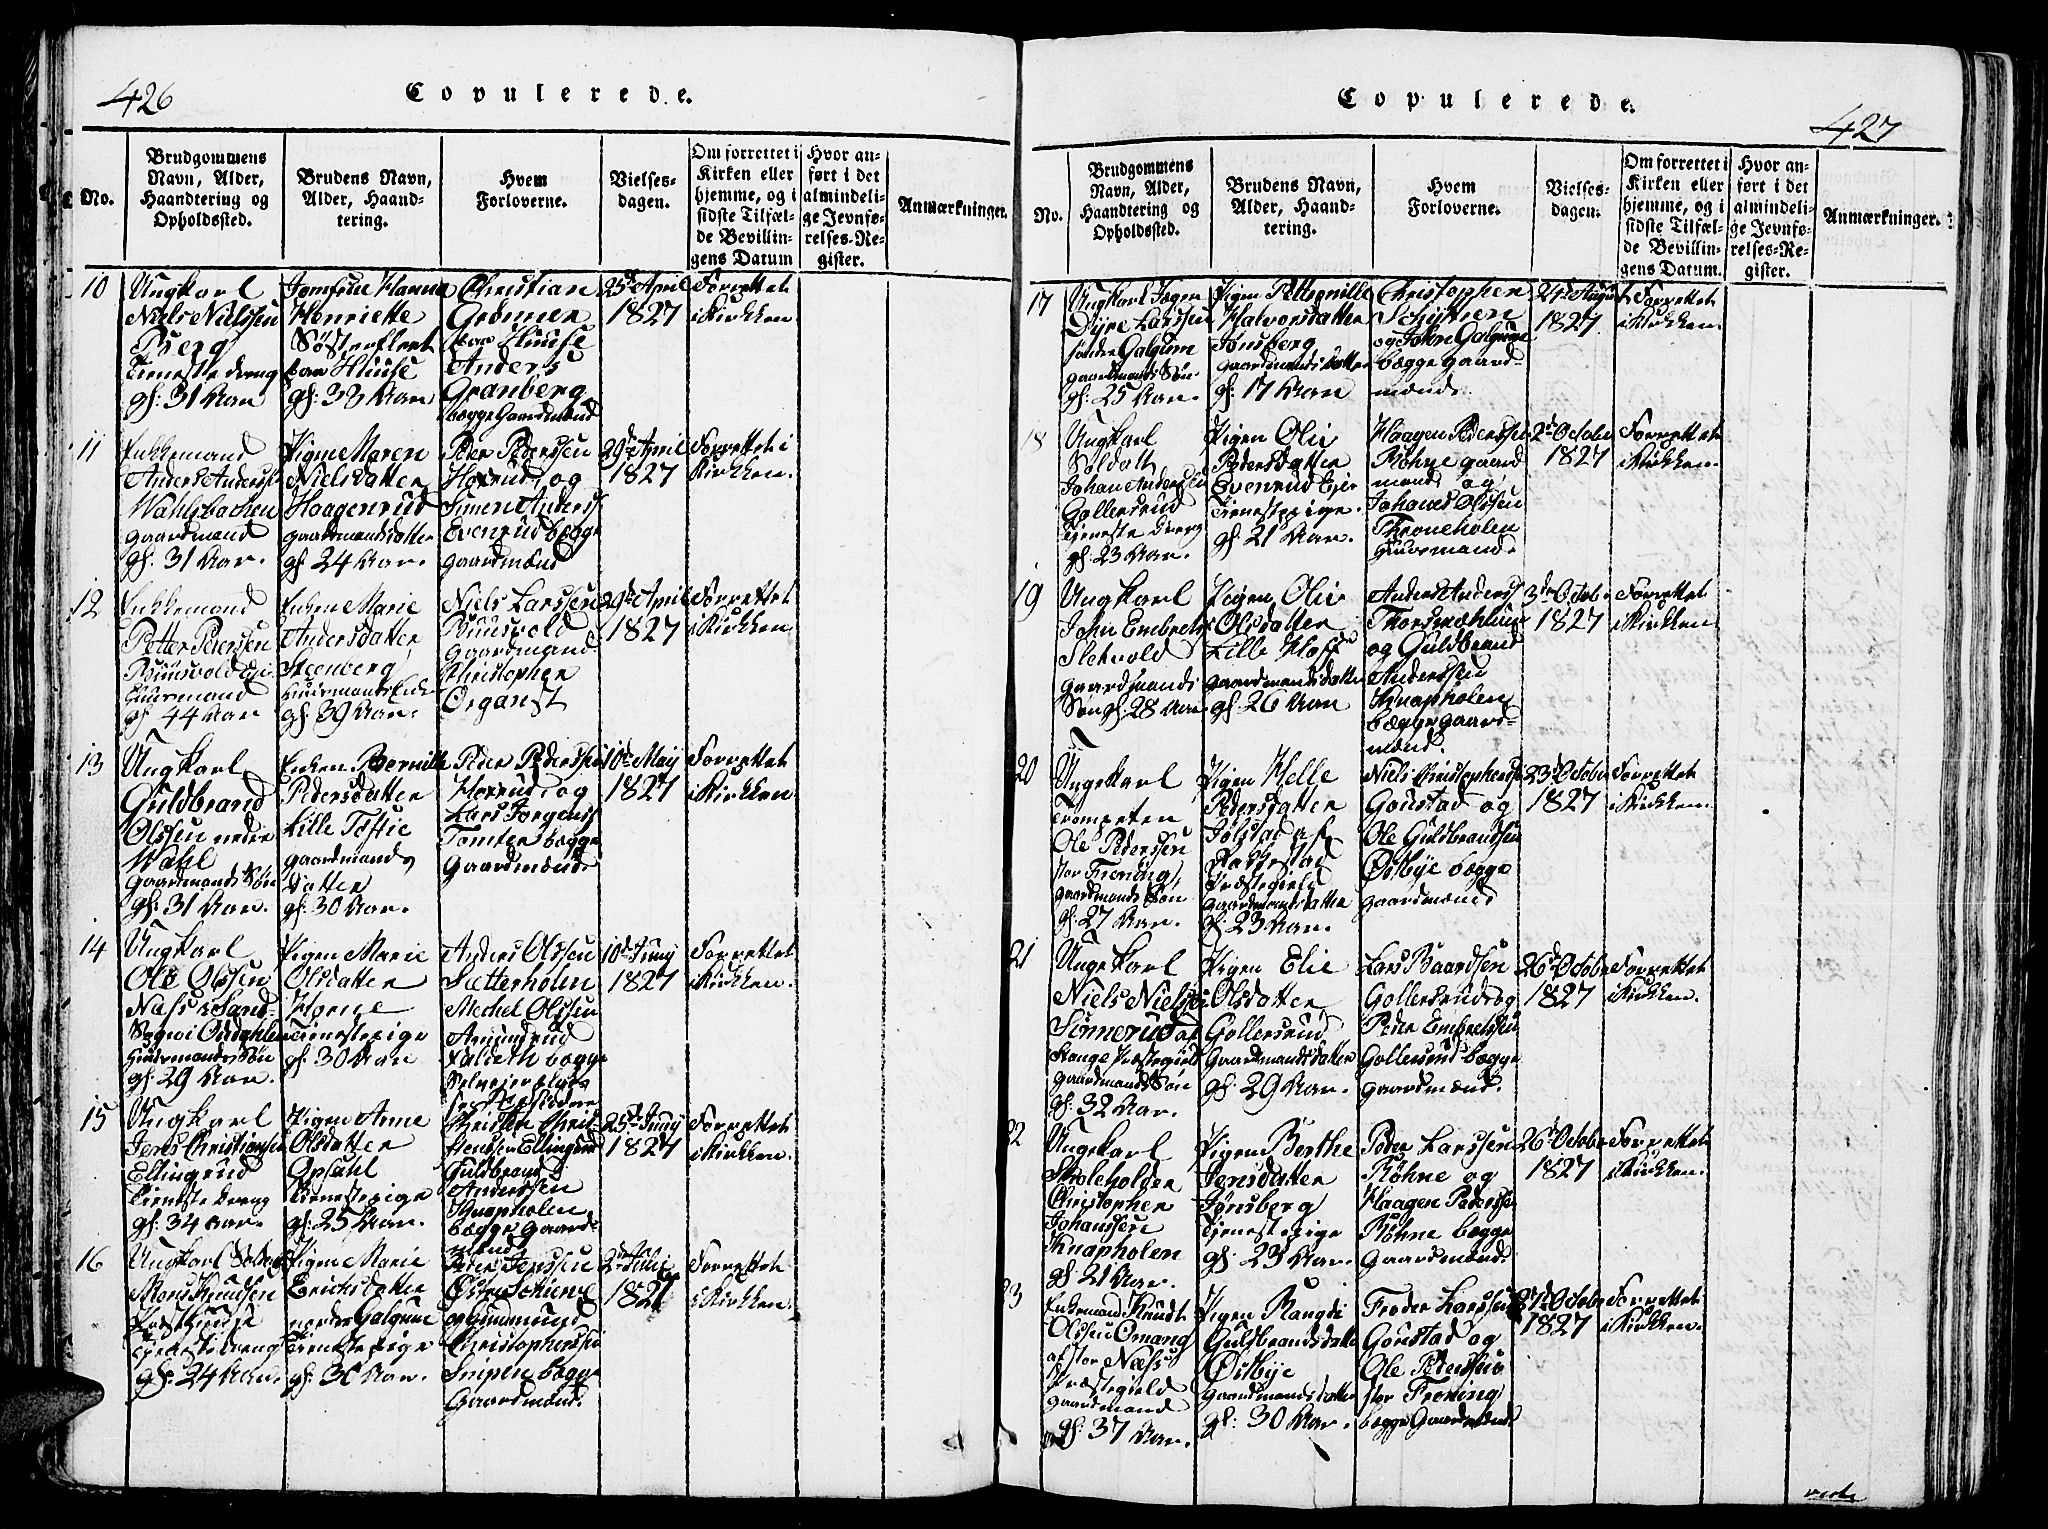 426
Copulerede.
No.
Brudgommens
Navn, Alder,
Haandtering og
Opholdssted.
Brudens Navn,
Alder, Haand-
tering.
Hvem
Forloverne.
Vielses-
dagen.
Om forrettet i
Kirken eller
hjemme, og i
sidste Tilfæl-
de Bevillin-
gens Datum
Hvor an-
ført i det
almindeli-
ge Jevnfø-
relses-Re-
gister.
Anmærkninger.
10
Ungkarl
Niels Nielssen
Berg
Tieneste dreng
gl: 31 Aar
Jomfrue Hanna
Henriette
gl: 38 Aar
Christian
Grønnen
Anders
Granberg
begge Gaardmænd
25de April
1827
Forrettet
i Kirkken.
11
Enkkemand
Anders Anderss
Wahlsbachen
gaardmand
gl: 31 Aar.
Pigen Maren
Nielsdatter
Haagenrud
gaardmandsdatter
gl: 24 Aar.
Peder Pederssen
Horrud og
Simen Anderss
Evenrud begge
gaardmænd
29de April
1827
Forrettet i
Kirkken.
12
Enkkemand
Petter Pederssen
Buusvold Ejr
Huusmand
gl: 44 Aar
Enken Marie
Andersdatter
Steenberg
Huusmands Enke
gl: 39 Aar.
Niels Larssen
Buusvold
Gaardmand
Christopher
Organist
29de April
1827
Forrettet
i Kirkken
13
Ungkarl
Guldbrand
Olssen nedre
Wahl
Gaardmands Søn
gl: 31 Aar.
Enken Bernille
Pedersdatter
Lille Toftie
gaardmands
datter
gl: 30 Aar.
Peder Pederssen
Horrud og
Lars Jørgenss
Tomter begge
Gaardmænd
10de Maij
1827
Forrettet
i Kirkken
14
Ungkarl
Ole Olssen
Huusmands Søn
gl: 29 Aar.
Pigen Marie
Olsdatter
Horne
Tienestepige
gl: 30 Aar
Anders Olssen
Sætterholm
Mechel Olssen
Amundrud
begge
10de Junij
1827
Forrettet
i Kirkken.
15
Ungkarl
Jens Christianssen
Ellingrud
Tieneste dreng
gl: 34 Aar.
Pigen Anne
Olsdatter
Opsahl
Tienestepige
gl: 25 Aar.
Christen Chris-
tenssen Ellingrud
Guldbrand
Anderssen
Knapholen
begge gaard-
mænd
25de Junij
1827
Forrettet
i Kirkken.
16
Ungkarl Soldat
Mons Knudsen
Præsthuuse
Tieneste dreng
gl: 24 Aar.
Pigen Marie
Erichsdatter
nordre Galgum
Tienestepige
gl: 30 Aar.
Peder Jenssen
og Gudmund
Christopherssen
Snipen begge
Gaardmænd.
2den Julij
1827
Forrettet
i Kirkken.
Copulerede.
427
No.
Brudgommens
Navn, Alder,
Haandtering og
Opholdssted.
Brudens Navn,
Alder, Haand-
tering.
Hvem
Forloverne.
Vielses-
dagen.
Om forrettet i
Kirken eller
hjemme, og i
sidste Tilfæl-
de Bevillin-
gens Datum.
Hvor an-
ført i det
almindeli-
ge Jevnfø-
relses-Re-
gister.
Anmærkninger.
17
Ungkarl Jegen
Dyre Larssen
søndre Galgum
gaardmands Søn
gl: 25 Aar.
Pigen Pettronille
Halvorsdatter
Jønsberg
gaardmandsdatter
gl: 17 Aar
Christopher
Schjthien
og John Galgum
begge gaard-
mænd.
24de August
1827
Forrettet
i Kirkken.
18
Ungkarl
Soldatt
Johan Anderssen
Gollersrud
Tjeneste dreng
gl: 23 Aar.
Pigen Olie
Pedersdatter
Evenrud Ejer
Tienestepige.
gl: 21 Aar.
Haagen Pederssen
Røhne gaard
mand og
Johanes Olssen
Throneholen
Huusmand.
2de October
1827
Forrettet
i Kirkken.
19
Ungkarl
John Embrets
Sletvold
gaardmands
Søn gl: 28 Aar
Pigen Olie
Olsdatter
Lille Hoff
gaardmandsdatter
gl: 26 Aar
Anders Anderss
Thorsmæhuus
og Guldbrand
Anderssen
Knapholen
begge gaard-
mænd.
3de Octobr
1827
Forrettet
i Kirkken.
20
Ungekarl
Trompeter
Ole Pederssen
stor Froning
gaardmands Søn
gl: 27 Aar.
Pigen Helle
Pedersdatter
Jølstad af
Rakkestad
Præstegield
gaardmandsdatter
gl: 23 Aar.
Niels Christophersen
Goustad og
Ole Guldbrandsen
Østbye begge
gaardmænd
23de Octobr
1827
Forrettet
i Kirkken.
21
Ungekarl
Niels Nielsen
Sønnerud af
Stange Præstegield
gaardmands Søn
gl: 32 Aar.
Pigen Elie
Olsdatter
Gollersrud
gaardmandsdatter
gl: 29 Aar.
Lars Baardsen
Gollersrud og
Peder Embretssen
Gollersrud begge
gaardmænd.
26de Octobr
1827
Forrettet
i Kirkken.
22
Ungekarl
Skoleholder
Christopher
Johanssen
Knapholen
gl: 21 Aar.
Pigen Berthe
Jensdatter
Jønsberg
Tjenestepige
gl: 23 Aar.
Peder Larssen
Røhne og
Haagen Pederssen
Røhne begge
Gaardmænd.
26de Octobr
1827
Forrettet
i Kirkken.
23
Enkemand Knudt
Olssen Omang
af stor Næs
Præstegield
gaardmand
gl: 37 Aar.
Pigen Rangdi
Guldbrandsdatter
Østbye
gaardmandsdatter
gl: 30 Aar.
Frode Larssen
Goustad og
Ole Pederssen
stor Froning
begge Gaardmænd
27de Octobr
1827
Forrettet
i Kirkken.